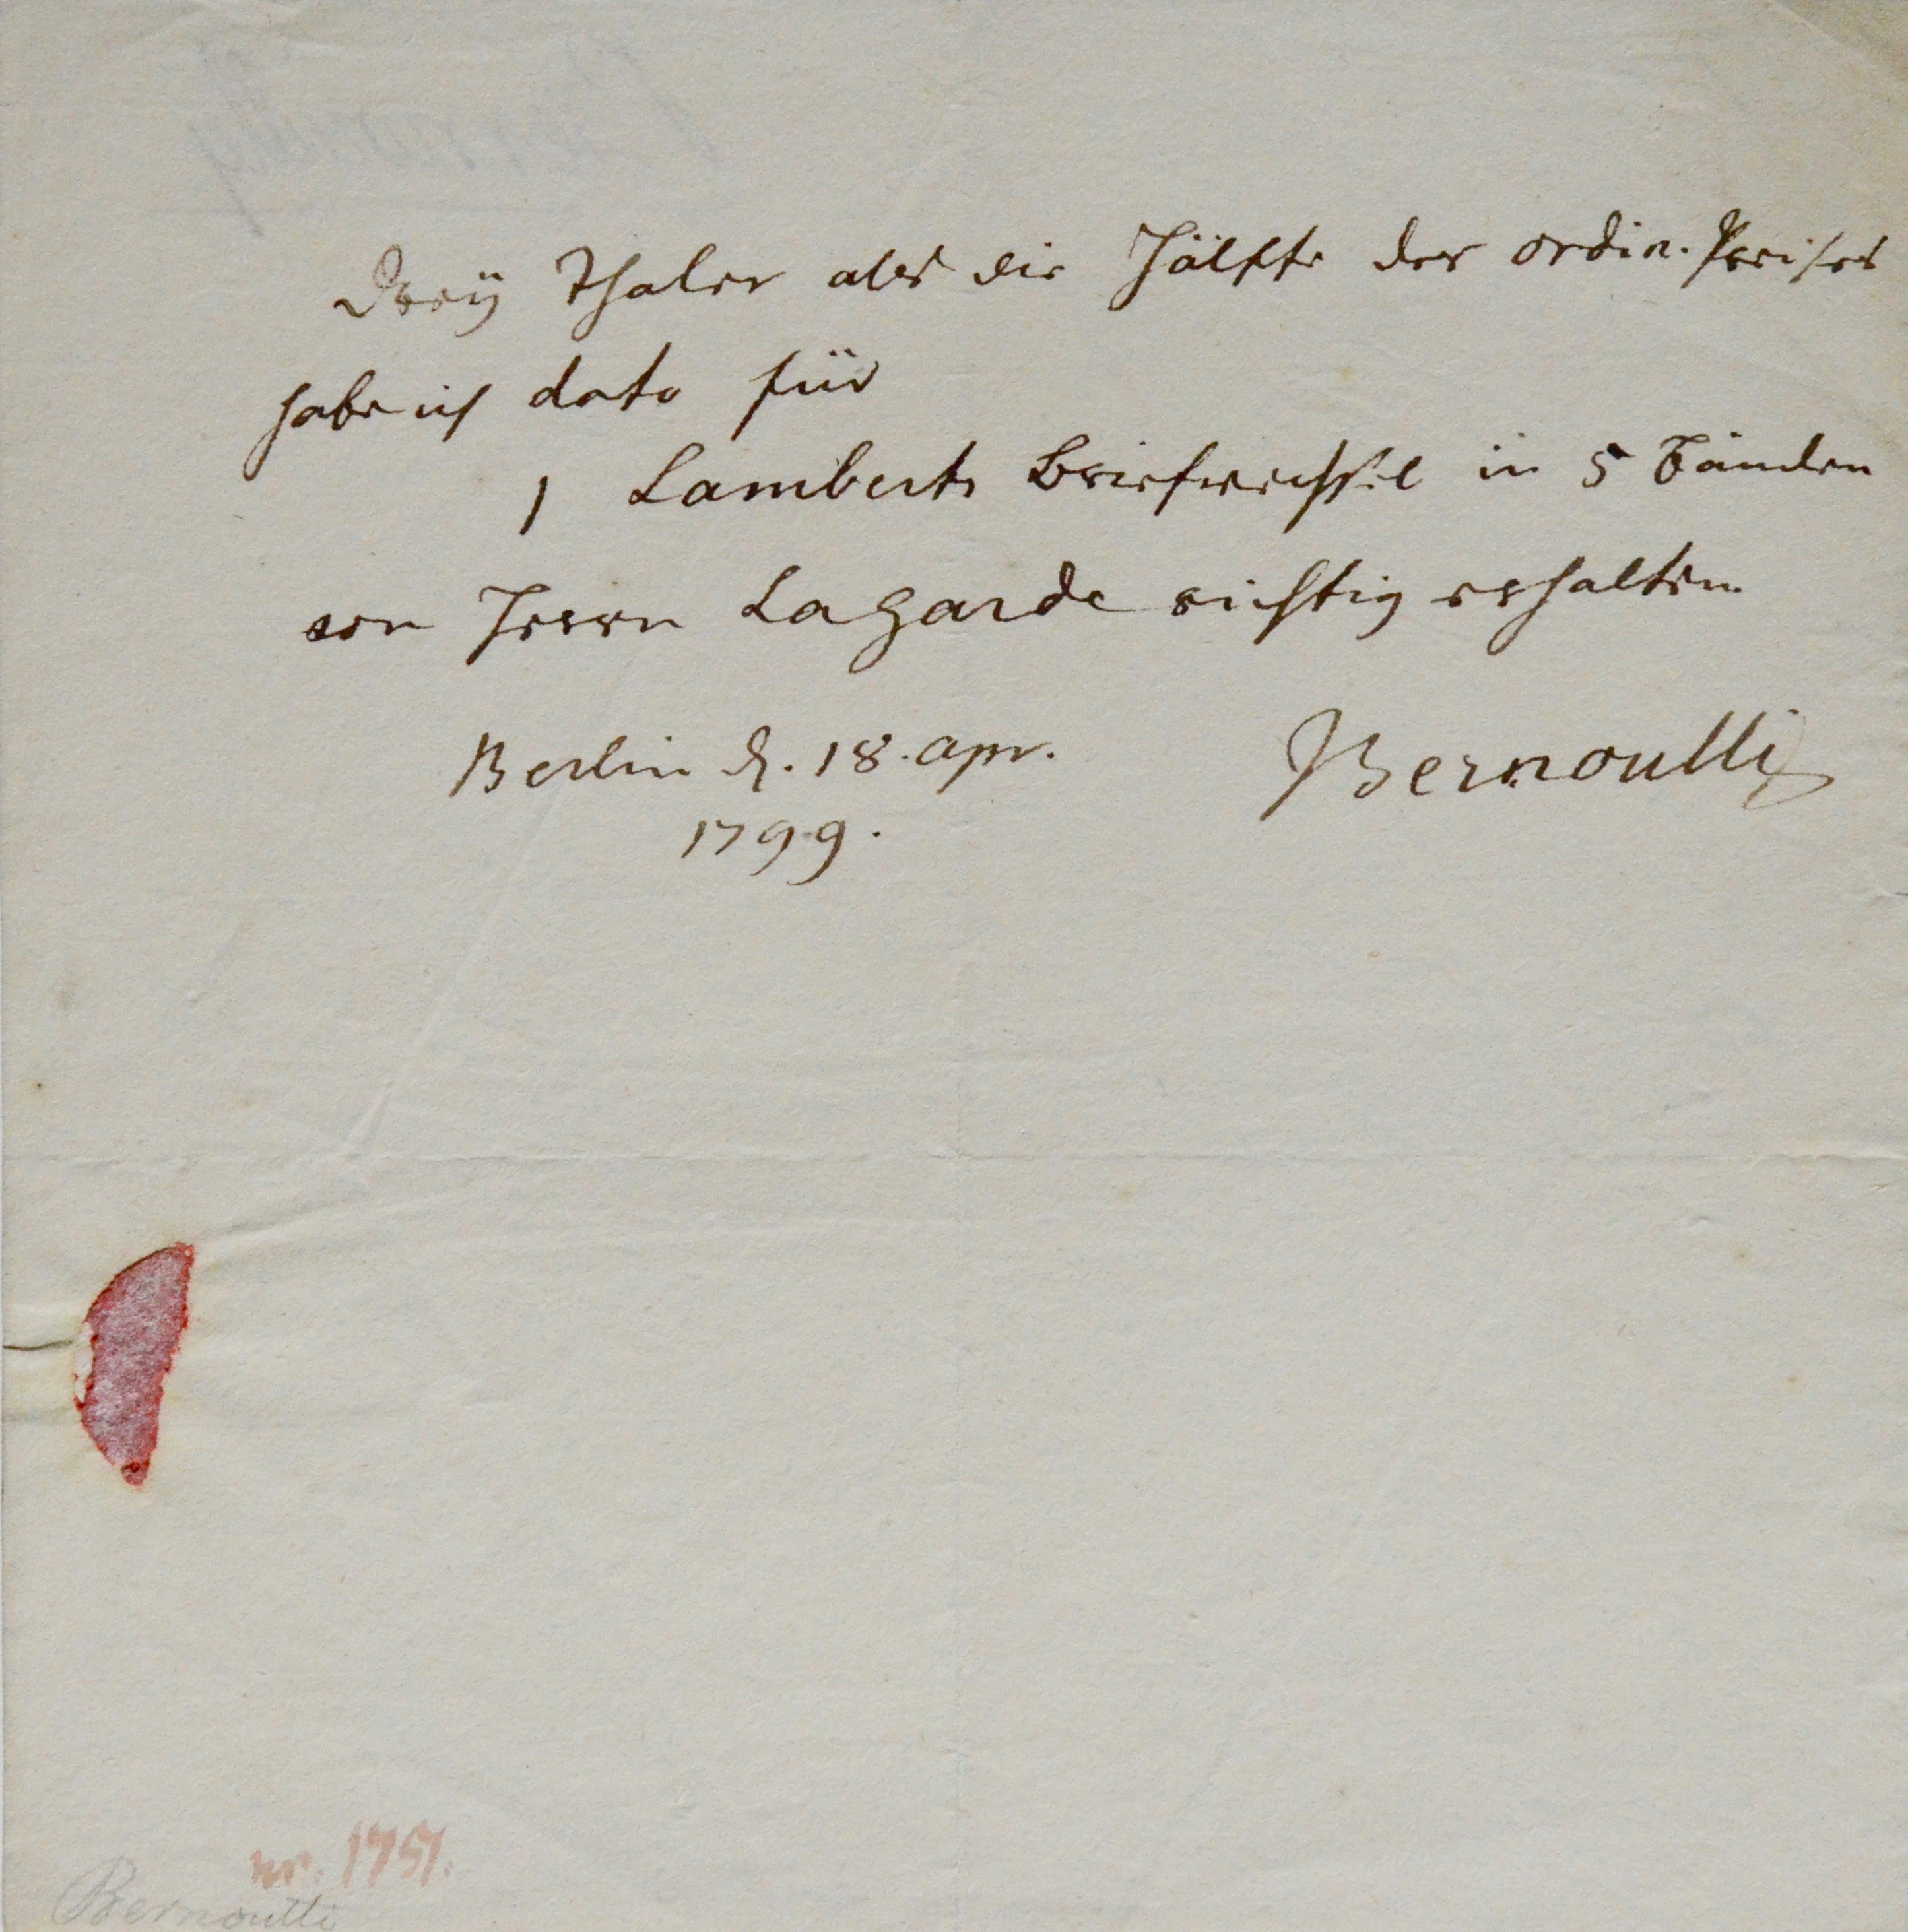 Dreÿ Thaler als die Hälfte des ordin. Preises
habe ich dato für
1 Lamberts Briefwechsel in 5 Bänden
von Herrn Lagarde richtig erhalten.
Berlin d. 18. apr. Bernoulli
1799.
nr. 1751.
Bernoulli